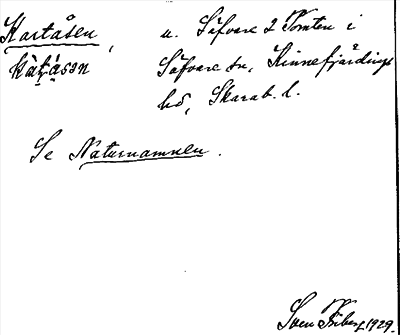 Kartåsen, u. Säfvare 2 Tomten i
kàt̯ásən Säfvare sn, Kinnefjärdings
hd, Skarab. l.
Se Naturnamnen.
Sven 1929.